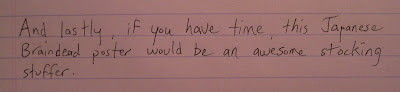 And lastly, if you have time, this Japanese
Braindead poster would be an awesome stocking
stuffer.